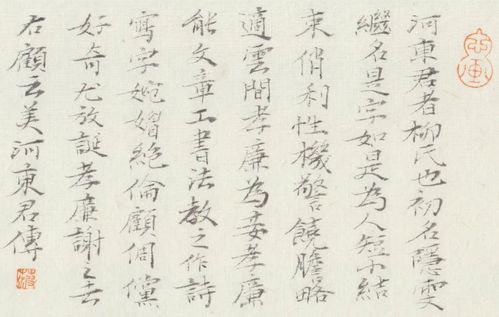 河東君者柳氏也初名隱雯
繼名是字如是為人短小結
束俏利性機警饒膽略
適雲間孝廉為妾孝廉
能文章工書法教之作詩
寫字婉媚絕倫顧倜儻
好奇尤放誕孝廉謝之去
右顧云美河東君傳